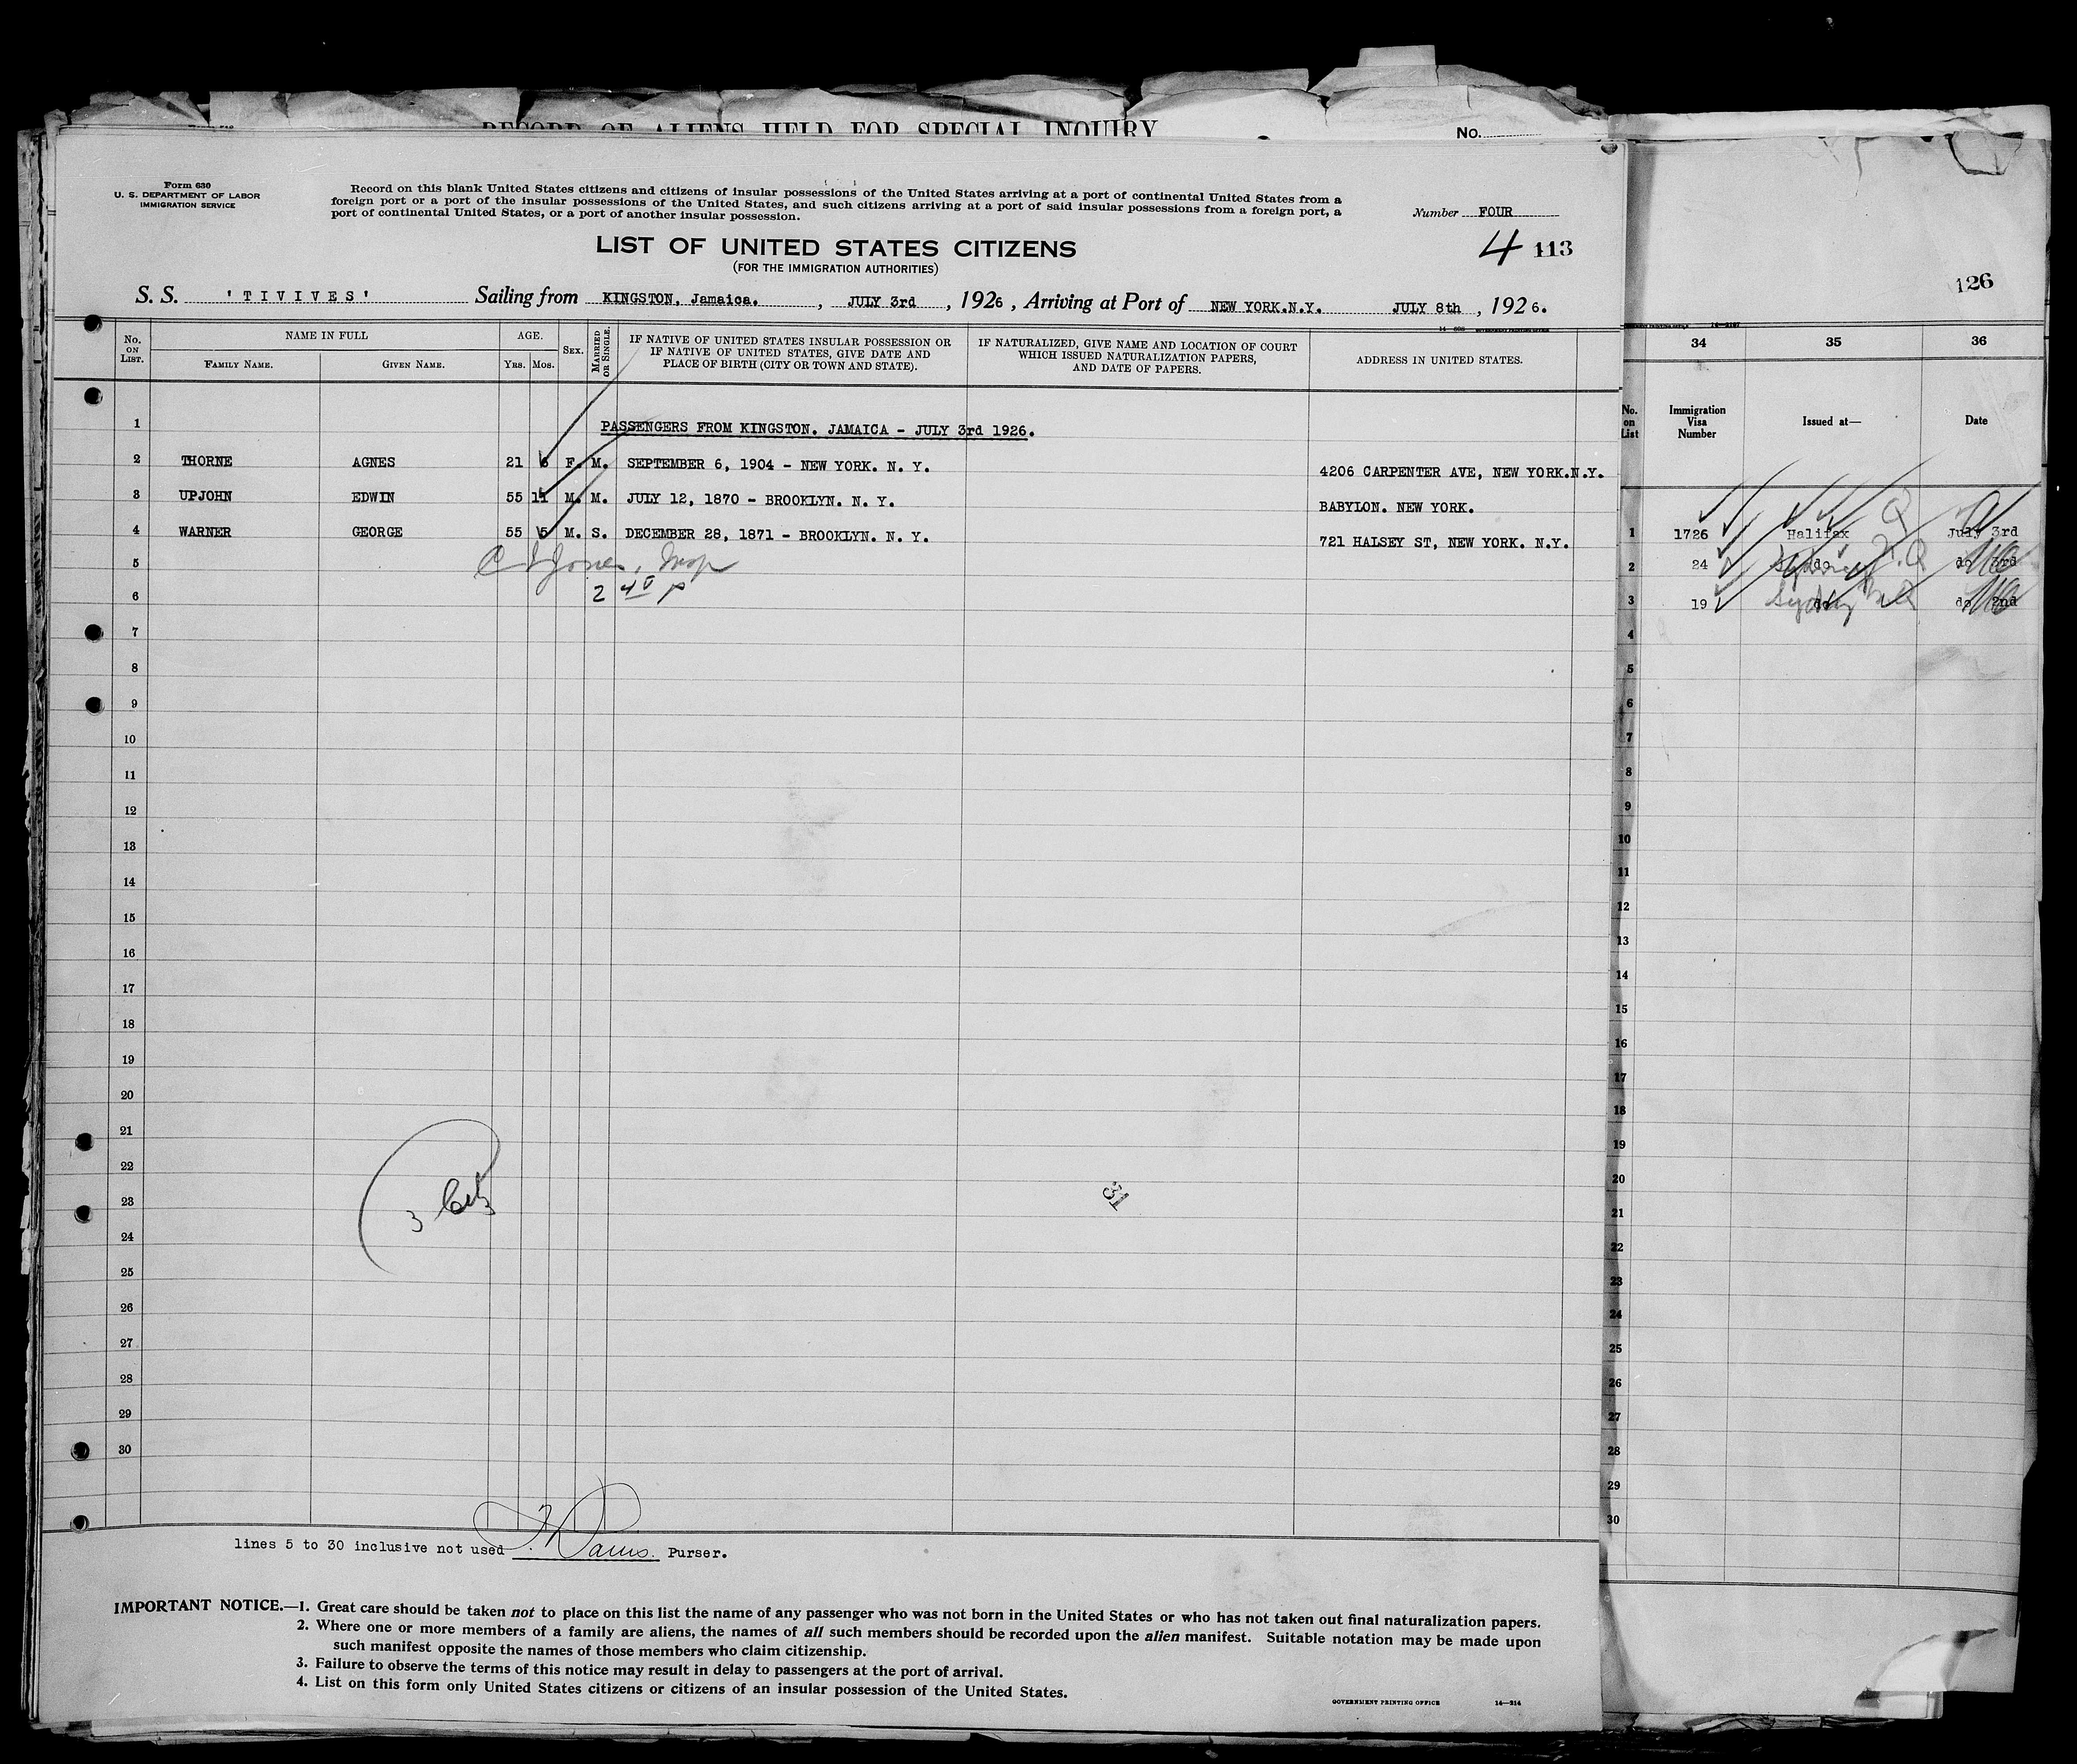 RECORD OF ALIENS HELD FOR SPECIAL INQUIRY
No.
Form 630
U. S. DEPARTMENT OF LABOR
IMMIGRATION SERVICE
Record on this blank United States citizens and citizens of insular possessions of the United States arriving at a port of continental United States from a
foreign port or a port of the insular possessions of the United States, and such citizens arriving at a port of said insular possessions from a foreign port, a
port of continental United States, or a port of another insular possession.
Number FOUR
LIST OF UNITED STATES CITIZENS
(FOR THE IMMIGRATION AUTHORITIES)
4 113
S. S. 'TIVIVES' Sailing from KINGSTON, Jamaica. , JULY 3rd , 1926 , Arriving at Port of NEW YORK.N.Y. JULY 8th , 1926.
No. ON LIST.
NAME IN FULL
FAMILY NAME. GIVEN NAME.
AGE.
YRS. MOS.
SEX.
MARRIED OR SINGLE.
IF NATIVE OF UNITED STATES INSULAR POSSESSION OR
IF NATIVE OF UNITED STATES, GIVE DATE AND
PLACE OF BIRTH (CITY OR TOWN AND STATE).
IF NATURALIZED, GIVE NAME AND LOCATION OF COURT
WHICH ISSUED NATURALIZATION PAPERS,
AND DATE OF PAPERS.
ADDRESS IN UNITED STATES.
1 PASSENGERS FROM KINGSTON. JAMAICA - JULY 3rd 1926.
2 THORNE AGNES 21 F. M. SEPTEMBER 6, 1904 - NEW YORK. N. Y. 4206 CARPENTER AVE, NEW YORK.N.Y.
3 UPJOHN EDWIN 55 11 M. M. JULY 12, 1870 - BROOKLYN. N. Y. BABYLON. NEW YORK.
4 WARNER GEORGE 55 5 M. S. DECEMBER 28, 1871 - BROOKLYN. N. Y. 721 HALSEY ST, NEW YORK. N.Y.
5 Jones, Insp
6 2 40 P
7
8
9
10
11
12
13
14
15
16
17
18
19
20
21
22
23 3 31
24
25
26
27
28
29
30
lines 5 to 30 inclusive not used Purser.
IMPORTANT NOTICE.—1. Great care should be taken not to place on this list the name of any passenger who was not born in the United States or who has not taken out final naturalization papers.
2. Where one or more members of a family are aliens, the names of all such members should be recorded upon the alien manifest. Suitable notation may be made upon
such manifest opposite the names of those members who claim citizenship.
3. Failure to observe the terms of this notice may result in delay to passengers at the port of arrival.
4. List on this form only United States citizens or citizens of an insular possession of the United States.
GOVERNMENT PRINTING OFFICE 14—214
126
34 35 36
No. on List
Immigration Visa Number
Issued at—
Date
1 1726 Halifax July 3rd
2 24 do do 3rd
3 19 Sydney do do 2nd
4
5
6
7
8
9
10
11
12
13
14
15
16
17
18
19
20
21
22
23
24
25
26
27
28
29
30